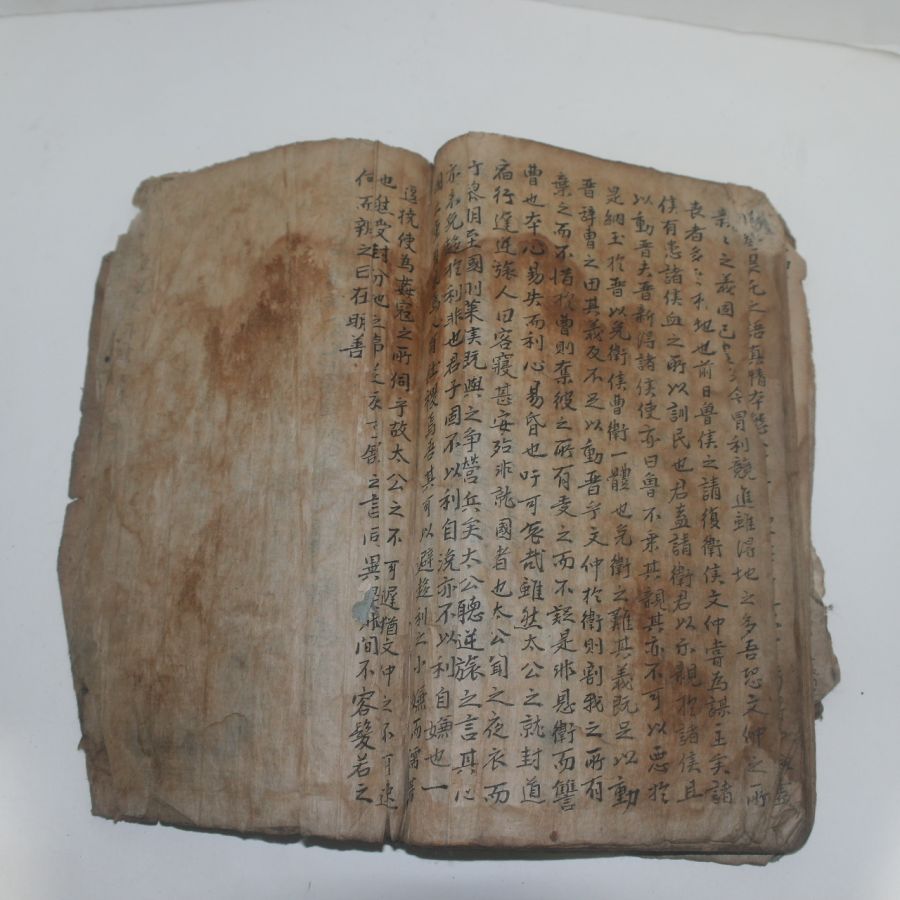 之語真情本態
之義固已 冒利競進雖得地之多吾恐文仲之所
喪者多 於地也前日魯侯之請復衛侯文仲嘗為謀主矣諸
侯有患諸侯血之所以訓民也君盍請衛君以示親於諸侯且
以動晋夫晋新得諸侯使亦曰魯不棄其親其亦不可以惡於
是納玉於晋以免衛侯曹衛一體也免衛之難其義既足以動
晋辞曹之田其義反不足以動晋乎文仲於衛則割我之所有
棄之而不惜於曹則奪彼之所有受之而不疑是非恩衛而讐
曹也本心易失而利心易昏也吁可畏哉雖然太公之就封道
宿行遲逆旅人曰客寢甚安殆非就國者也太公聞之夜衣而
行黎明至國則萊侯既與之爭營丘矣太公聽逆旅之言其心
亦未免趨於利非也君子固不以利自浼亦不以利自嫌也一
國之 為吾其可以避趨利之小嫌而濡滯
逗撓使為姦寇之所伺乎故太公之不可遲猶文仲之不可速
也 受封分地之 之言同異 間不容髮若之
何而辨之曰在明善